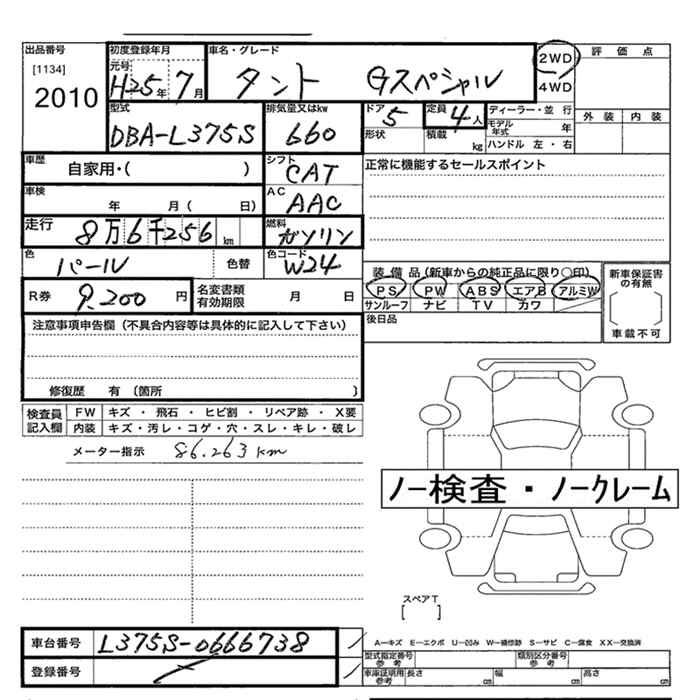 出品番号 初度登録年月 車名・グレード 2WD 評価点
[1134] 元号
2010 H25年 7月 タント Gスペシャル 4WD
型式 排気量又はkw ドア 5 定員 4人 ディーラー・並行 外装 内装
DBA-L375S 660 形状 積載 kg モデル年式 年
ハンドル 左・右
車歴 自家用・( ) シフト CAT 正常に機能するセールスポイント
車検 年 月 ( 日) AC AAC
走行 8万6千256km 燃料 ガソリン
色 パール 色替 色コード W24 装備品(新車からの純正品に限り○印) 新車保証書の有無
R券 9,200円 名変書類有効期限 月 日 PS PW ABS エアB アルミW
サンルーフ ナビ TV カワ
注意事項申告欄(不具合内容等は具体的に記入して下さい) 後日品 車載不可
修復歴 有 (箇所 )
検査員 FW キズ・飛石・ヒビ割・リペア跡・X要
記入欄 内装 キズ・汚レ・コゲ・穴・スレ・キレ・破レ
メーター指示 86.263 km
ノー検査・ノークレーム
スペアT
[ ]
車台番号 L375S-0666738 A―キズ E―エクボ U―凹み W―補修跡 S―サビ C―腐食 XX―交換済
登録番号 型式指定番号 参考 類別区分番号 参考
車庫証明用 参考 長さ cm 幅 cm 高さ cm